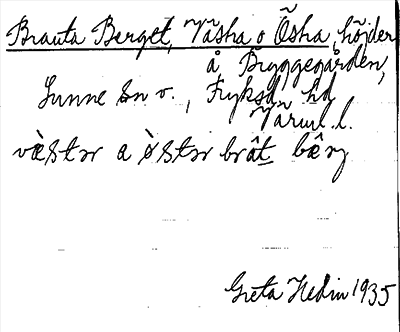 Brauta Berget, Väsha o Ösha, höjder
å Bryggegården,
Sunne sn o., Fryksd. hd
Värml. l.
væ̀stər a ø̀stər brât bæ̂rj
Greta Hedin 1935